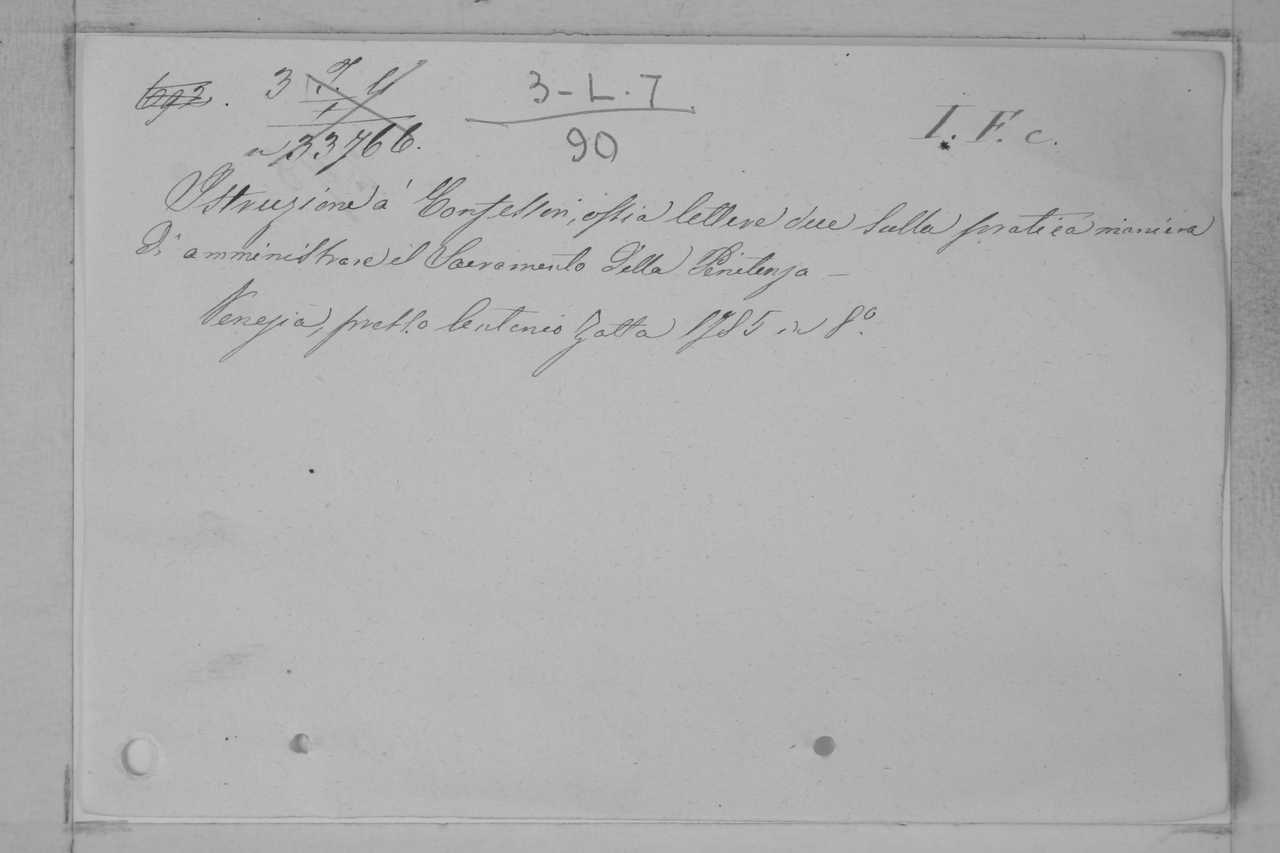 3 3-L.7 I. F. c.
33766. 90
Istruzione á Confessori, ossia lettere due sulla pratica maniera
di amministrare il Sacramento della Penitenza —
Venezia, presso Antonio Zatta 1785 in 8º.